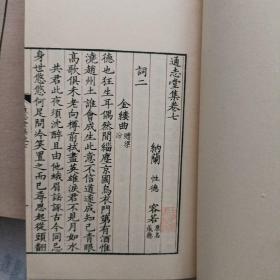 通志堂集卷七
納蘭 性德 容若 原名成德
詞二
金縷曲 贈梁汾
德也狂生耳偶然間緇塵京國烏衣門第有酒惟
澆趙州土誰會成生此意不信道遂成知己青眼
高歌俱未老向樽前拭盡英雄淚君不見月如水
共君此夜須沈醉且由他蛾眉謠諑古今同忌
身世悠悠何足問冷笑置之而已尋思起從頭翻